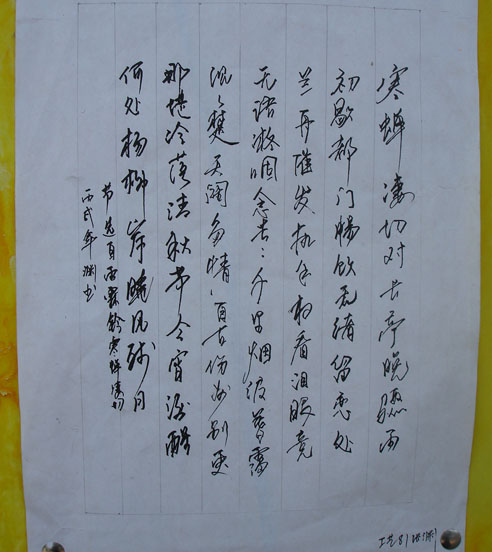 寒蝉凄切对长亭晚骤雨
初歇都门畅饮无绪留恋处
兰舟催发执手相看泪眼竟
无语凝咽念去々千里烟波暮霭
沉々楚天阔多情自古伤离别更
那堪冷落清秋节今宵酒醒
何处杨柳岸晓风残月
节选自雨霖铃寒蝉凄切
丙戌年渊书